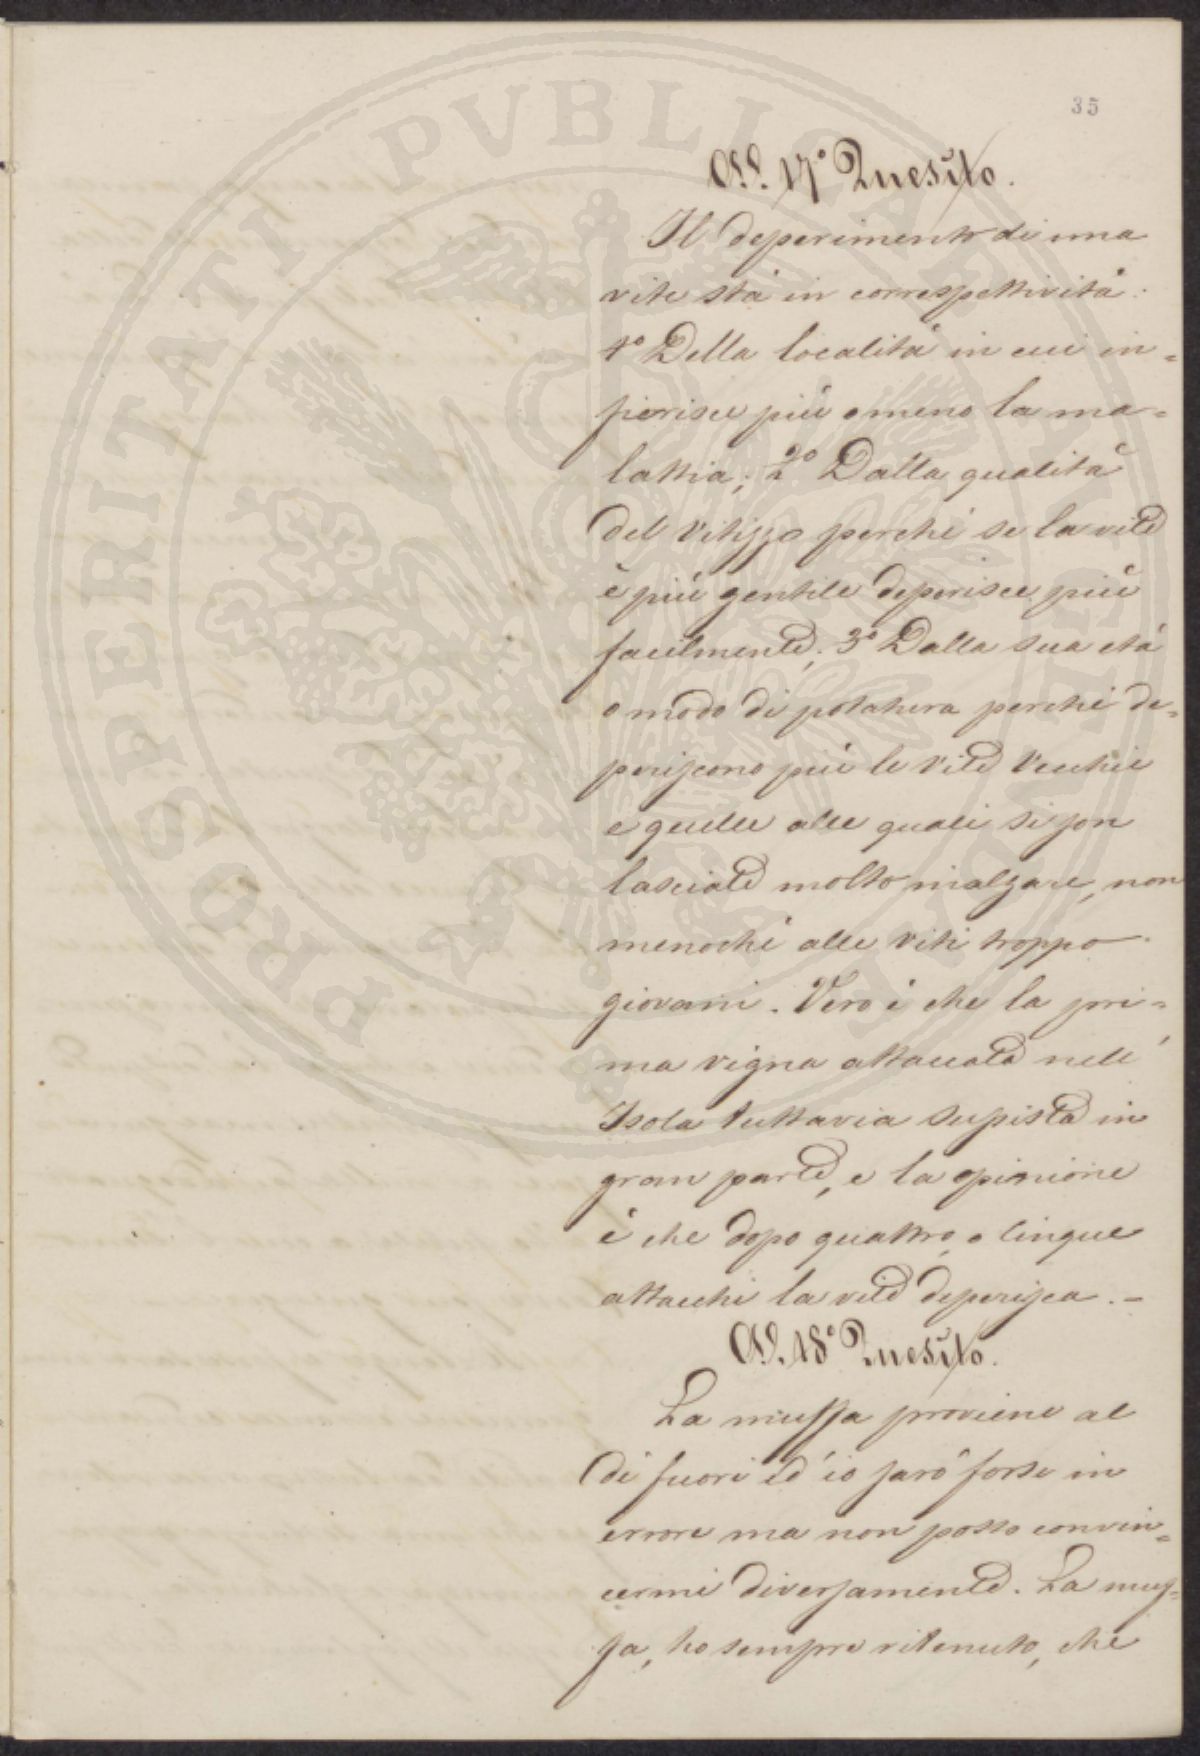 35
Al. 17° Quesito.
Il deperimento di una
vite stà in correspettività:
1° Della località in cui in=
fierisce più o meno la ma=
lattia; 2° Dalla qualità
del Vitizzo perchè se la vite
è più gentile deperisce più
facilmente; 3° Dalla sua età
o modo di potatura perchè de=
periscono più le vite Vecchie
e quelle alle quali si son
lasciate molto inalzare, non
menochè alle viti troppo
giovani. Vero è che la pri=
ma vigna attaccata nell'
Isola tuttavia supista in
gran parte, e la opinione
è che dopo quattro, o cinque
attacchi la vite deperisca. -
Al. 18° Quesito.
La muffa proviene al
di fuori ed io sarò forse in
errore ma non posso convin=
cermi diversamente. La muf=
fa, ho sempre ritenuto, che
PROSPERITATI PVBLICAE AVGENDAE